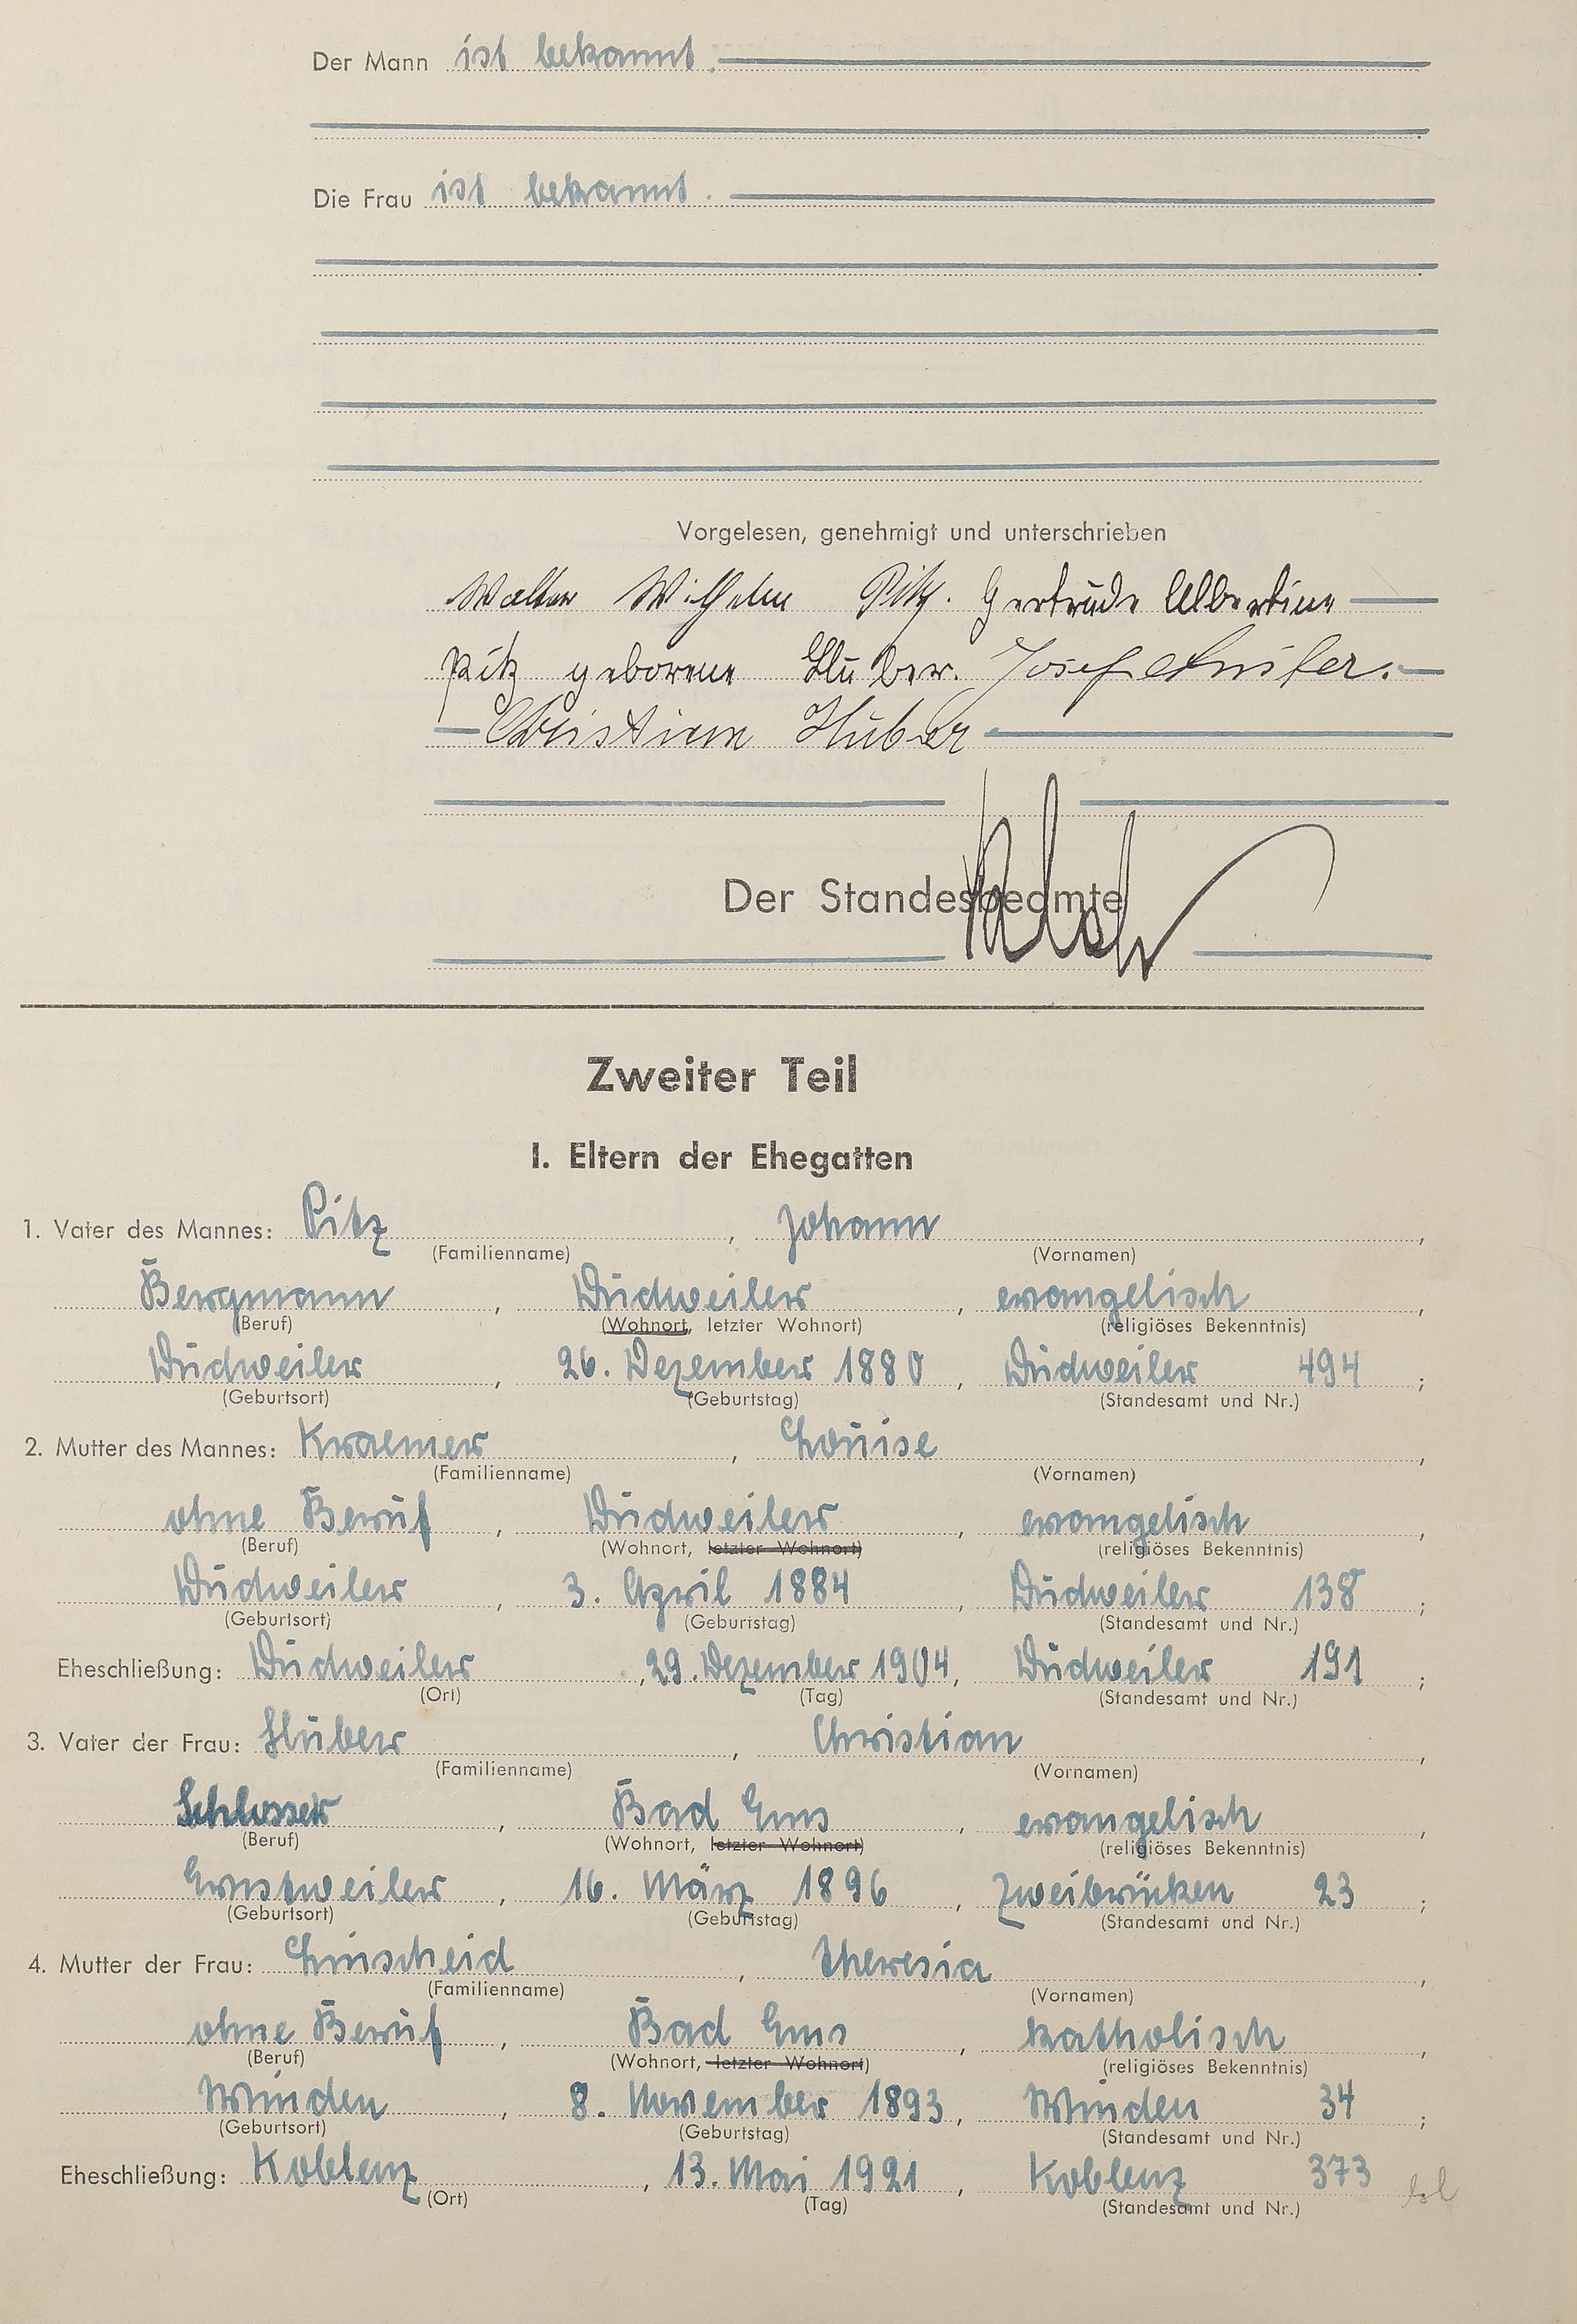 Der Mann ist bekannt.
Die Frau ist bekannt.
Vorgelesen, genehmigt und unterschrieben
Walter Wilhelm Pitz. Gertrude Albertine
Pitz geborene Huber. Josef
Christian Huber
Der Standesbeamte
Zweiter Teil
I. Eltern der Ehegatten
1. Vater des Mannes: Pitz, Johann,
(Familienname) (Vornamen)
Bergmann, Dudweiler, evangelisch,
(Beruf) (Wohnort, letzter Wohnort) (religiöses Bekenntnis)
Dudweiler, 26. Dezember 1880, Dudweiler 494;
(Geburtsort) (Geburtstag) (Standesamt und Nr.)
2. Mutter des Mannes: Kraemer, Louise,
(Familienname) (Vornamen)
ohne Beruf, Dudweiler, evangelisch,
(Beruf) (Wohnort, letzter Wohnort) (religiöses Bekenntnis)
Dudweiler, 3. April 1884, Dudweiler 138;
(Geburtsort) (Geburtstag) (Standesamt und Nr.)
Eheschließung: Dudweiler, 29. Dezember 1904, Dudweiler 191;
(Ort) (Tag) (Standesamt und Nr.)
3. Vater der Frau: Huber, Christian,
(Familienname) (Vornamen)
Schlosser, Bad Ems, evangelisch,
(Beruf) (Wohnort, letzter Wohnort) (religiöses Bekenntnis)
Ernstweiler, 16. März 1896, Zweibrücken 23;
(Geburtsort) (Geburtstag) (Standesamt und Nr.)
4. Mutter der Frau: Linscheid, Theresia,
(Familienname) (Vornamen)
ohne Beruf, Bad Ems, katholisch,
(Beruf) (Wohnort, letzter Wohnort) (religiöses Bekenntnis)
Winden, 8. November 1893, Winden 34;
(Geburtsort) (Geburtstag) (Standesamt und Nr.)
Eheschließung: Koblenz, 13. Mai 1921, Koblenz 373
(Ort) (Tag) (Standesamt und Nr.)